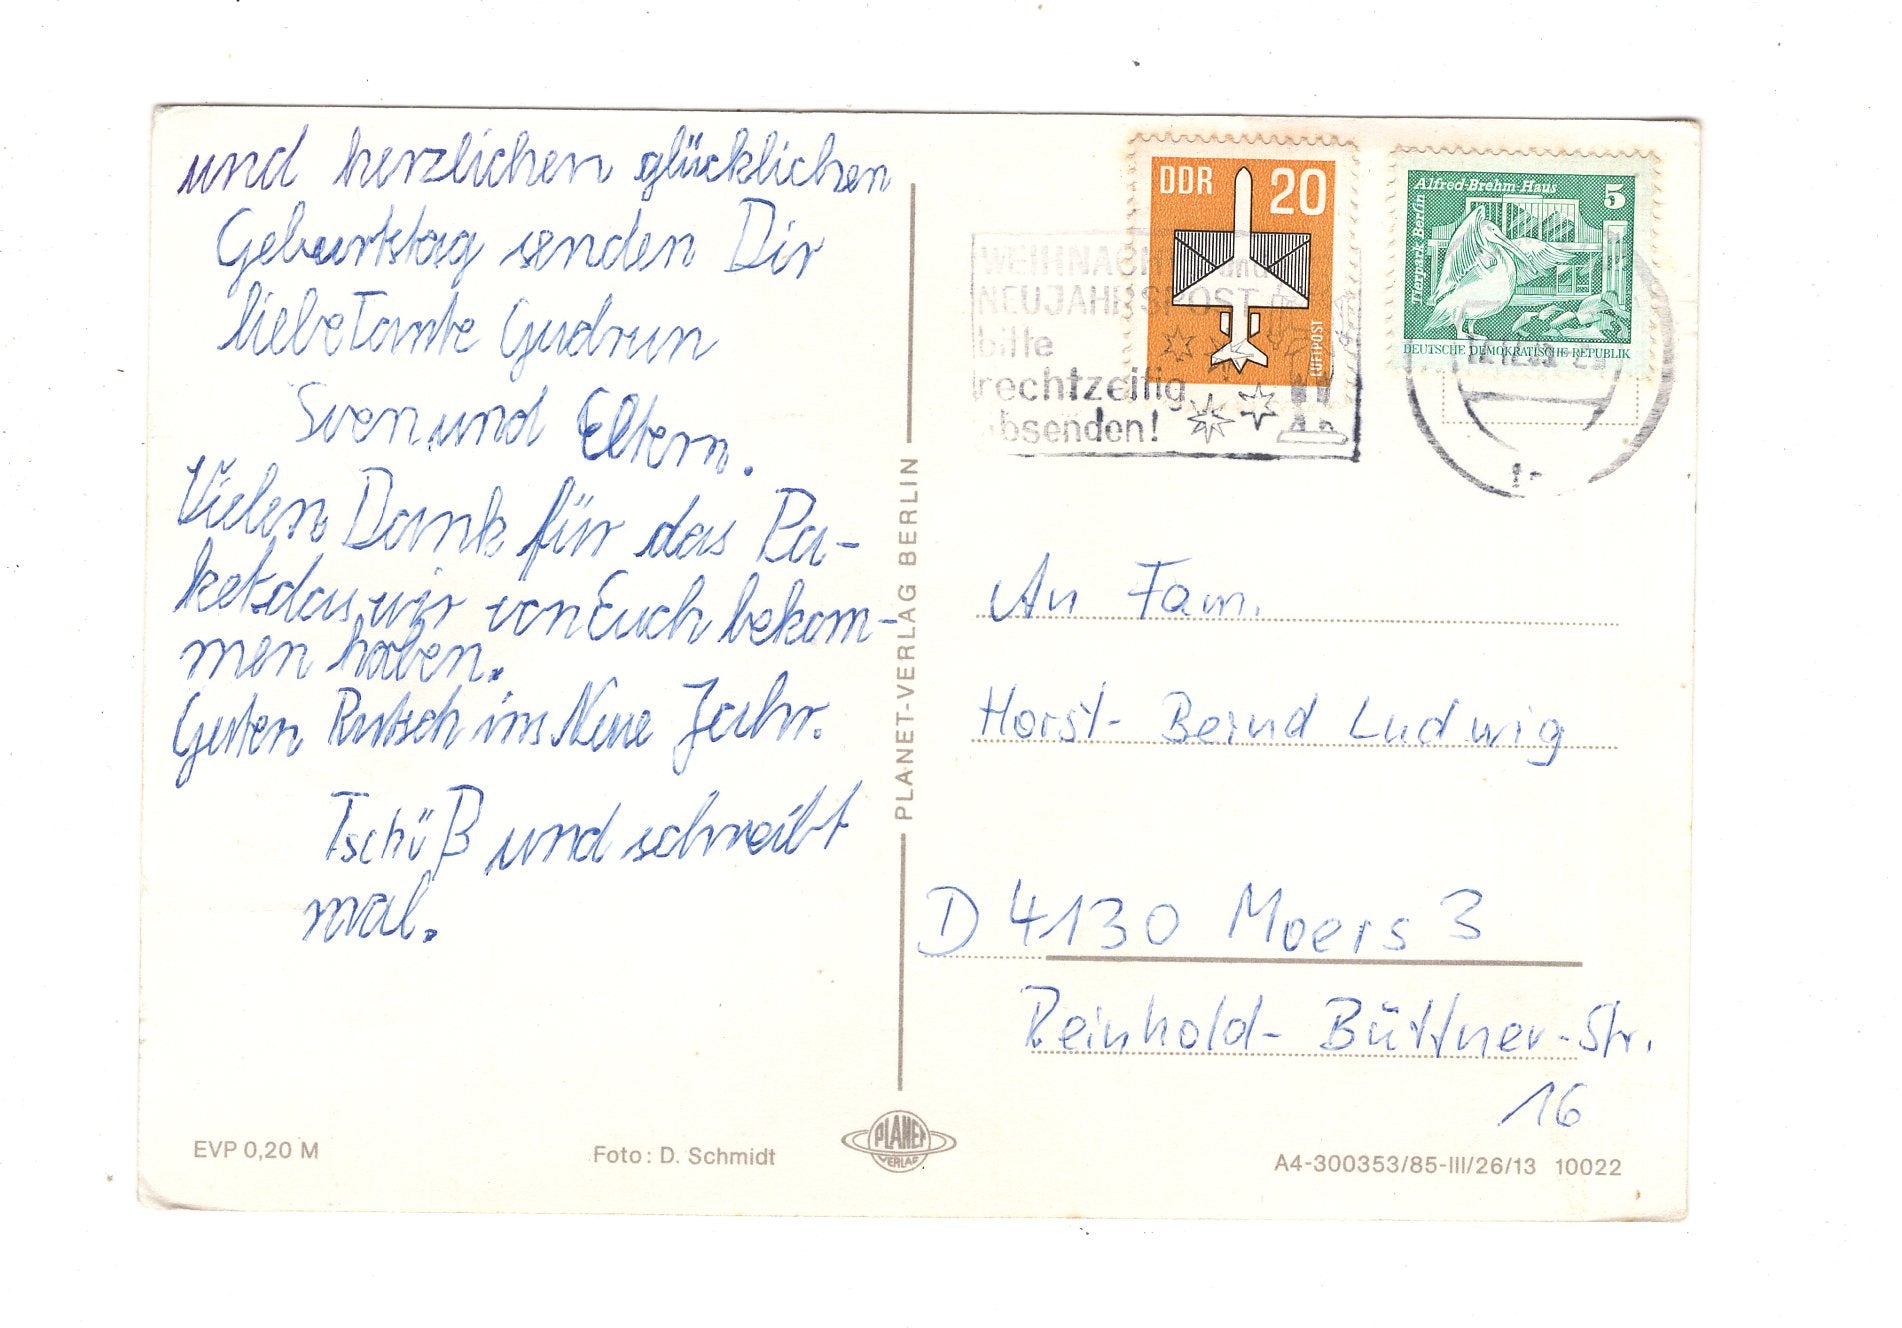 und herzlichen glücklichen
Geburtstag senden Dir
liebe Tante Gudrun
Sven und Eltern.
Vielen Dank für das Pa-
ket, das wir von Euch bekom-
men haben.
Guten Rutsch ins Neue Jahr.
Tschüß und schreibt
mal.
EVP 0,20 M
Foto: D. Schmidt
PLANET-VERLAG BERLIN
PLANET
VERLAG
DDR 20
LUFTPOST
Alfred-Brehm-Haus 5
Tierpark Berlin
DEUTSCHE DEMOKRATISCHE REPUBLIK
WEIHNACHTS und
NEUJAHRSPOST
bitte
rechtzeitig
absenden!
An Fam.
Horst-Bernd Ludwig
D 4130 Moers 3
Reinhold-Büttner-Str.
16
A4-300353/85-III/26/13 10022